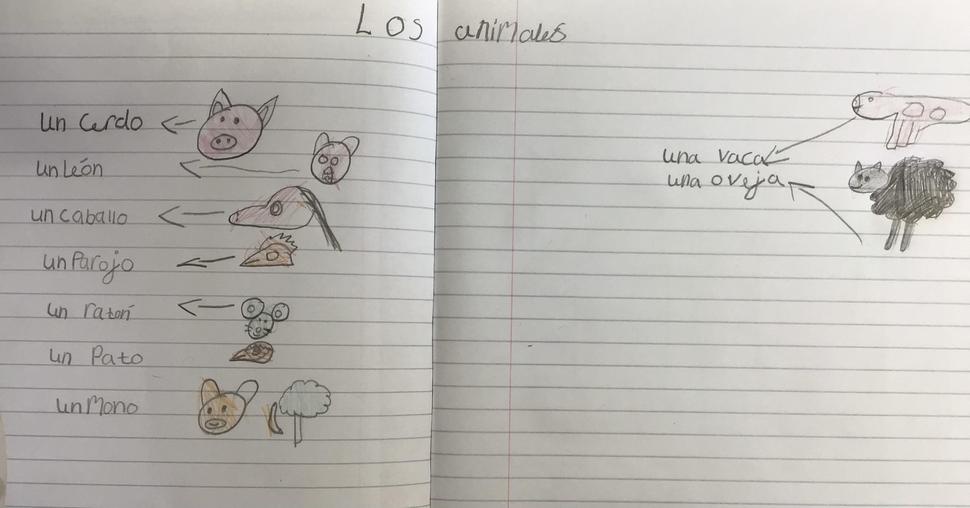 Los animales
un cerdo
un león
un caballo
un Parojo
un ratón
un Pato
un Mono
una vaca
una oveja